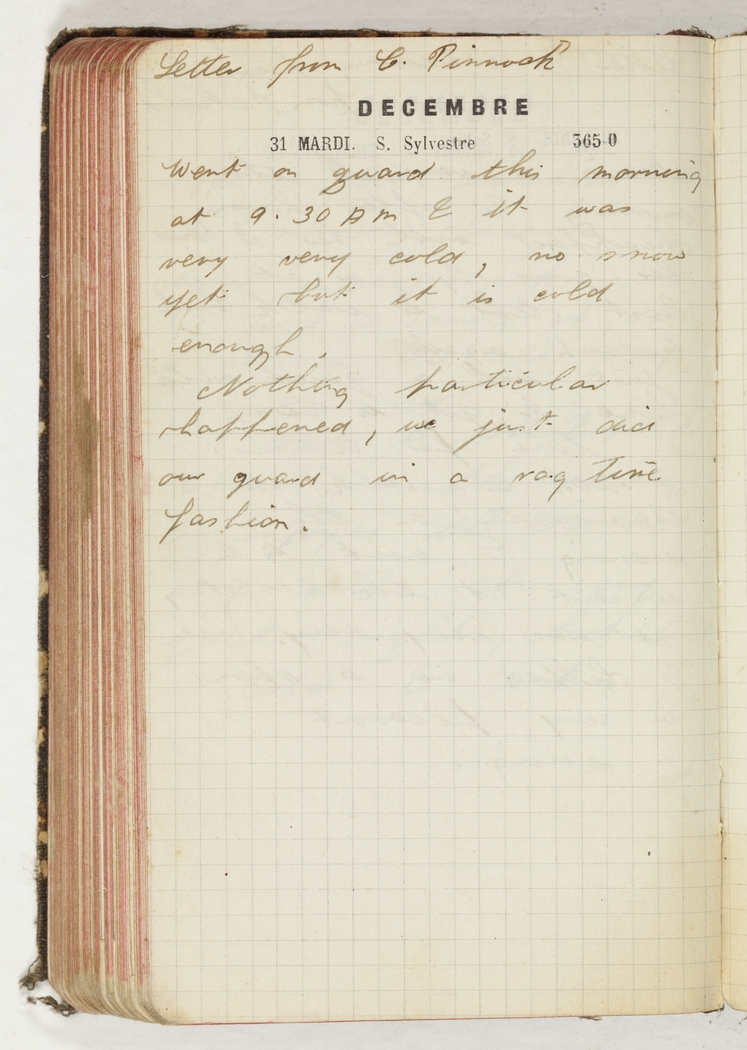 Letter from C. Pinnock
DECEMBRE
31 MARDI. S. Sylvestre 365-0
Went on guard this morning
at 9.30 Am & it was
very very cold, no snow
yet but it is cold
enough.
Nothing particular
happened, we just did
our guard in a rag time
fashion.